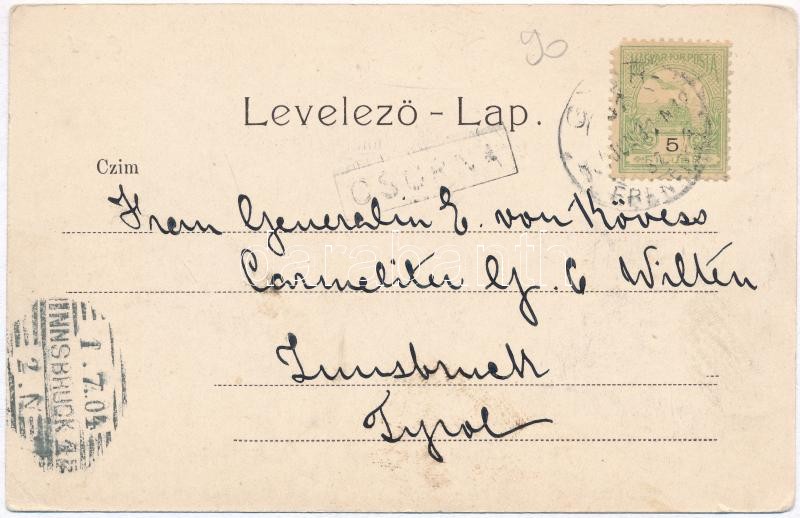 90
MAGYAR KIR. POSTA
5
Levelezö - Lap.
Czim
CSORNA
Frau Generalin E. von Kövess
Carmeliter G. 6 Wilten
Innsbruck
Tyrol
INNSBRUCK 1
1.7.04
2.N
darabanth